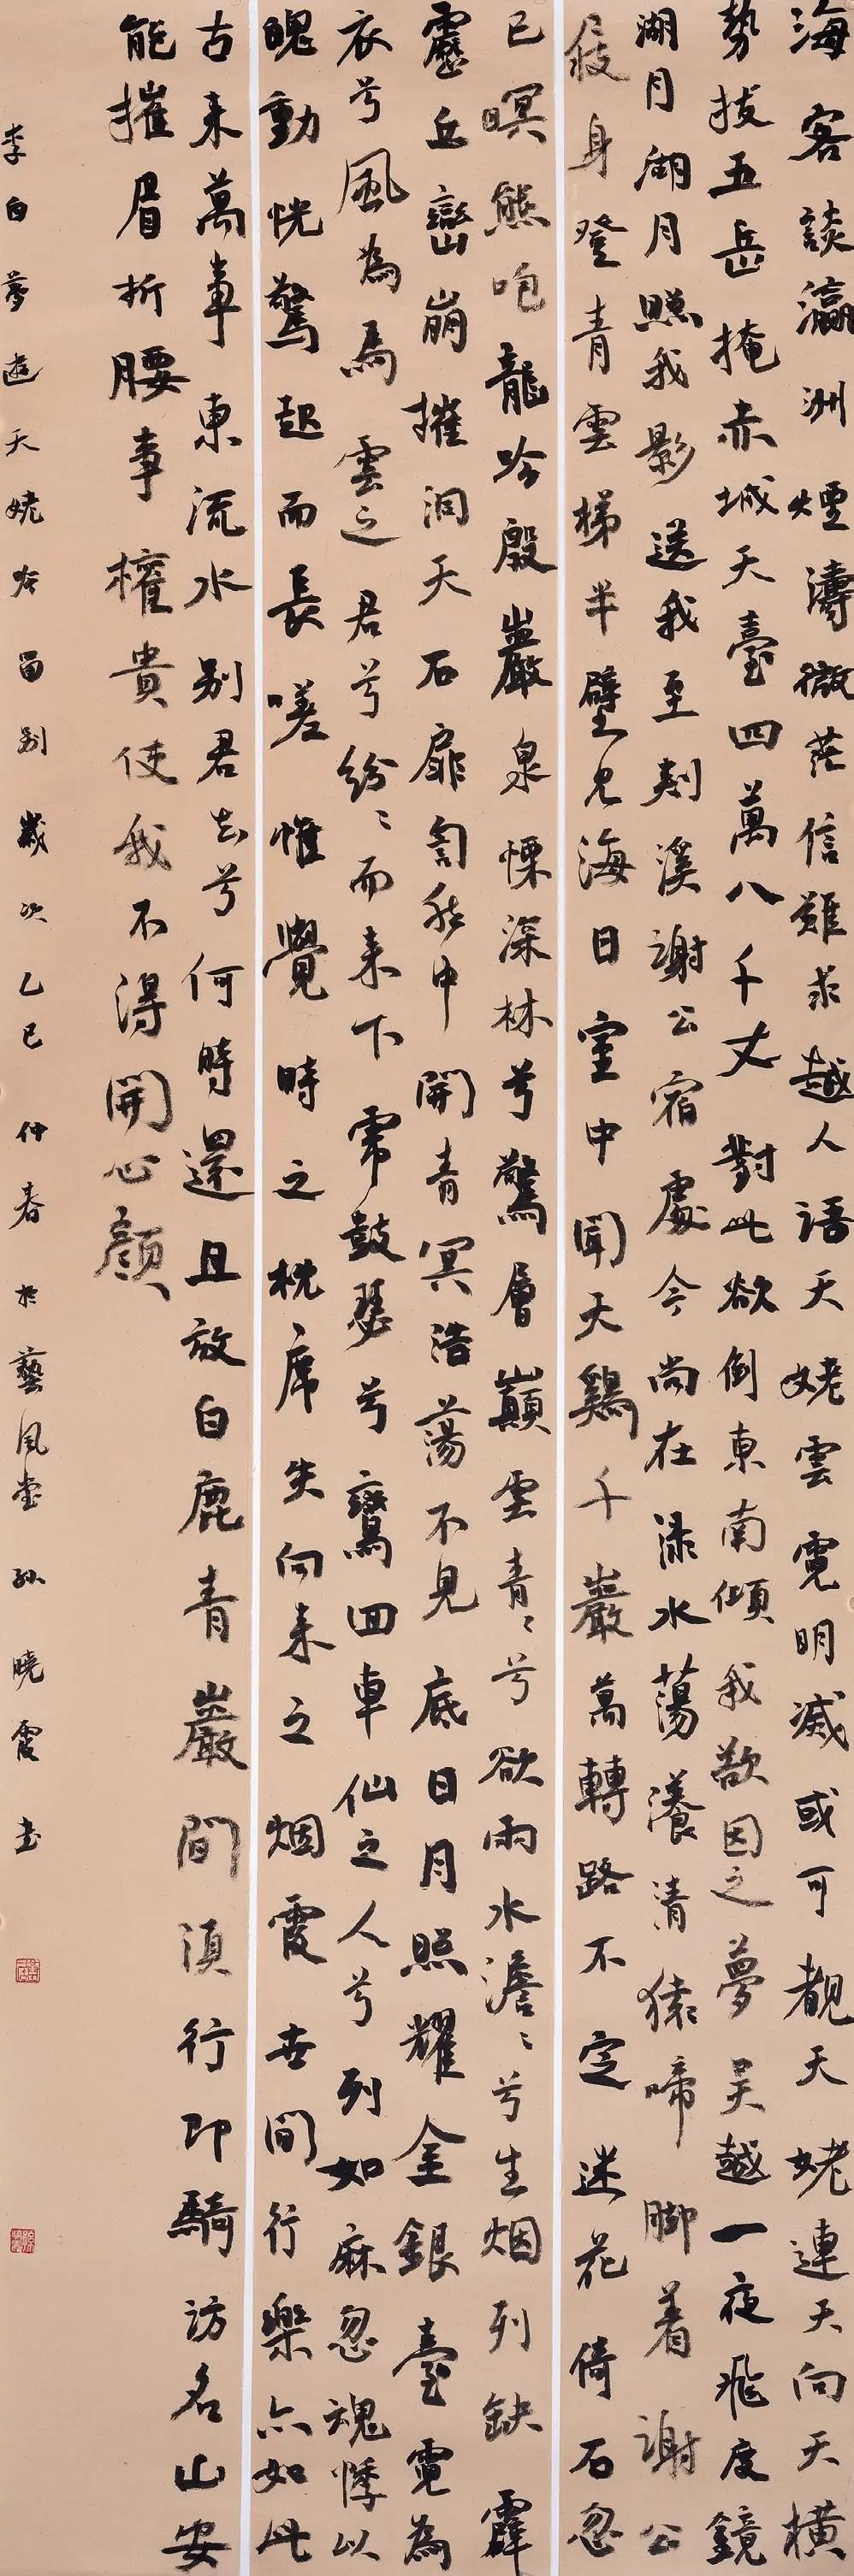 海客談瀛洲煙濤微茫信難求越人語天姥雲霓明滅或可覩天姥連天向天橫
勢拔五岳掩赤城天臺四萬八千丈對此欲倒東南傾我欲因之夢吳越一夜飛度鏡
湖月湖月照我影送我至剡溪謝公宿處今尚在淥水蕩瀁清猿啼腳着謝公
屐身登青雲梯半壁見海日空中聞天鷄千巖萬轉路不定迷花倚石忽
已暝熊咆龍吟殷巖泉慄深林兮驚層巔雲青〻兮欲雨水澹〻兮生烟列缺霹
靂丘巒崩摧洞天石扉訇然中開青冥浩蕩不見底日月照耀金銀臺霓為
衣兮風為馬雲之君兮紛〻而来下虎鼓瑟兮鸞回車仙之人兮列如麻忽魂悸以
魄動恍驚起而長嗟惟覺時之枕席失向来之烟霞世間行樂亦如此
古来萬事東流水别君去兮何時還且放白鹿青巖間須行即騎訪名山安
能摧眉折腰事權貴使我不得開心顏
李白夢遊天姥吟留别歲次乙巳仲春於藝風堂孫曉霞書